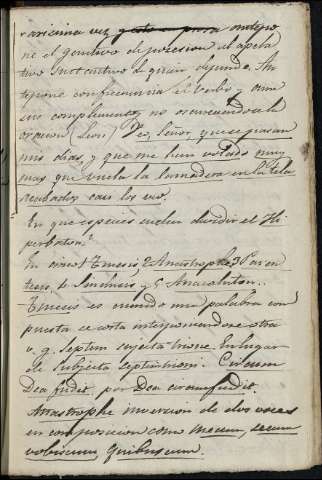 rarisima vez antepo
ne el genitivo de posesion al apela
tivo sustantivo de quien depende. An
tepone con frecuencia el verbo y aun
sus complementos no oscureciendo la
oracion (Leon) Veo, Señor, que se pasan
mis dias, y que me han volado muy
mas que vuela la lanzadera en la tela
acabados casi los veo.
En que especies suelen dividir el Hi
perbaton?
En cinco 1 Tmesis, 2 Anastrophe, 3 Paren
tesis, 4 Sinchisis y 5 Anacoluton.
Tmesis es cuando una palabra com
puesta se corta interponiendose otra
v. g. Septem subjecta trioni. En lugar
de Subjecta septentrioni. Circum
Dea fudit por Dea circumfudit.
Anastrophe inversion de dos voces
en composicion como mecum, secum
vobiscum, quibuscum.